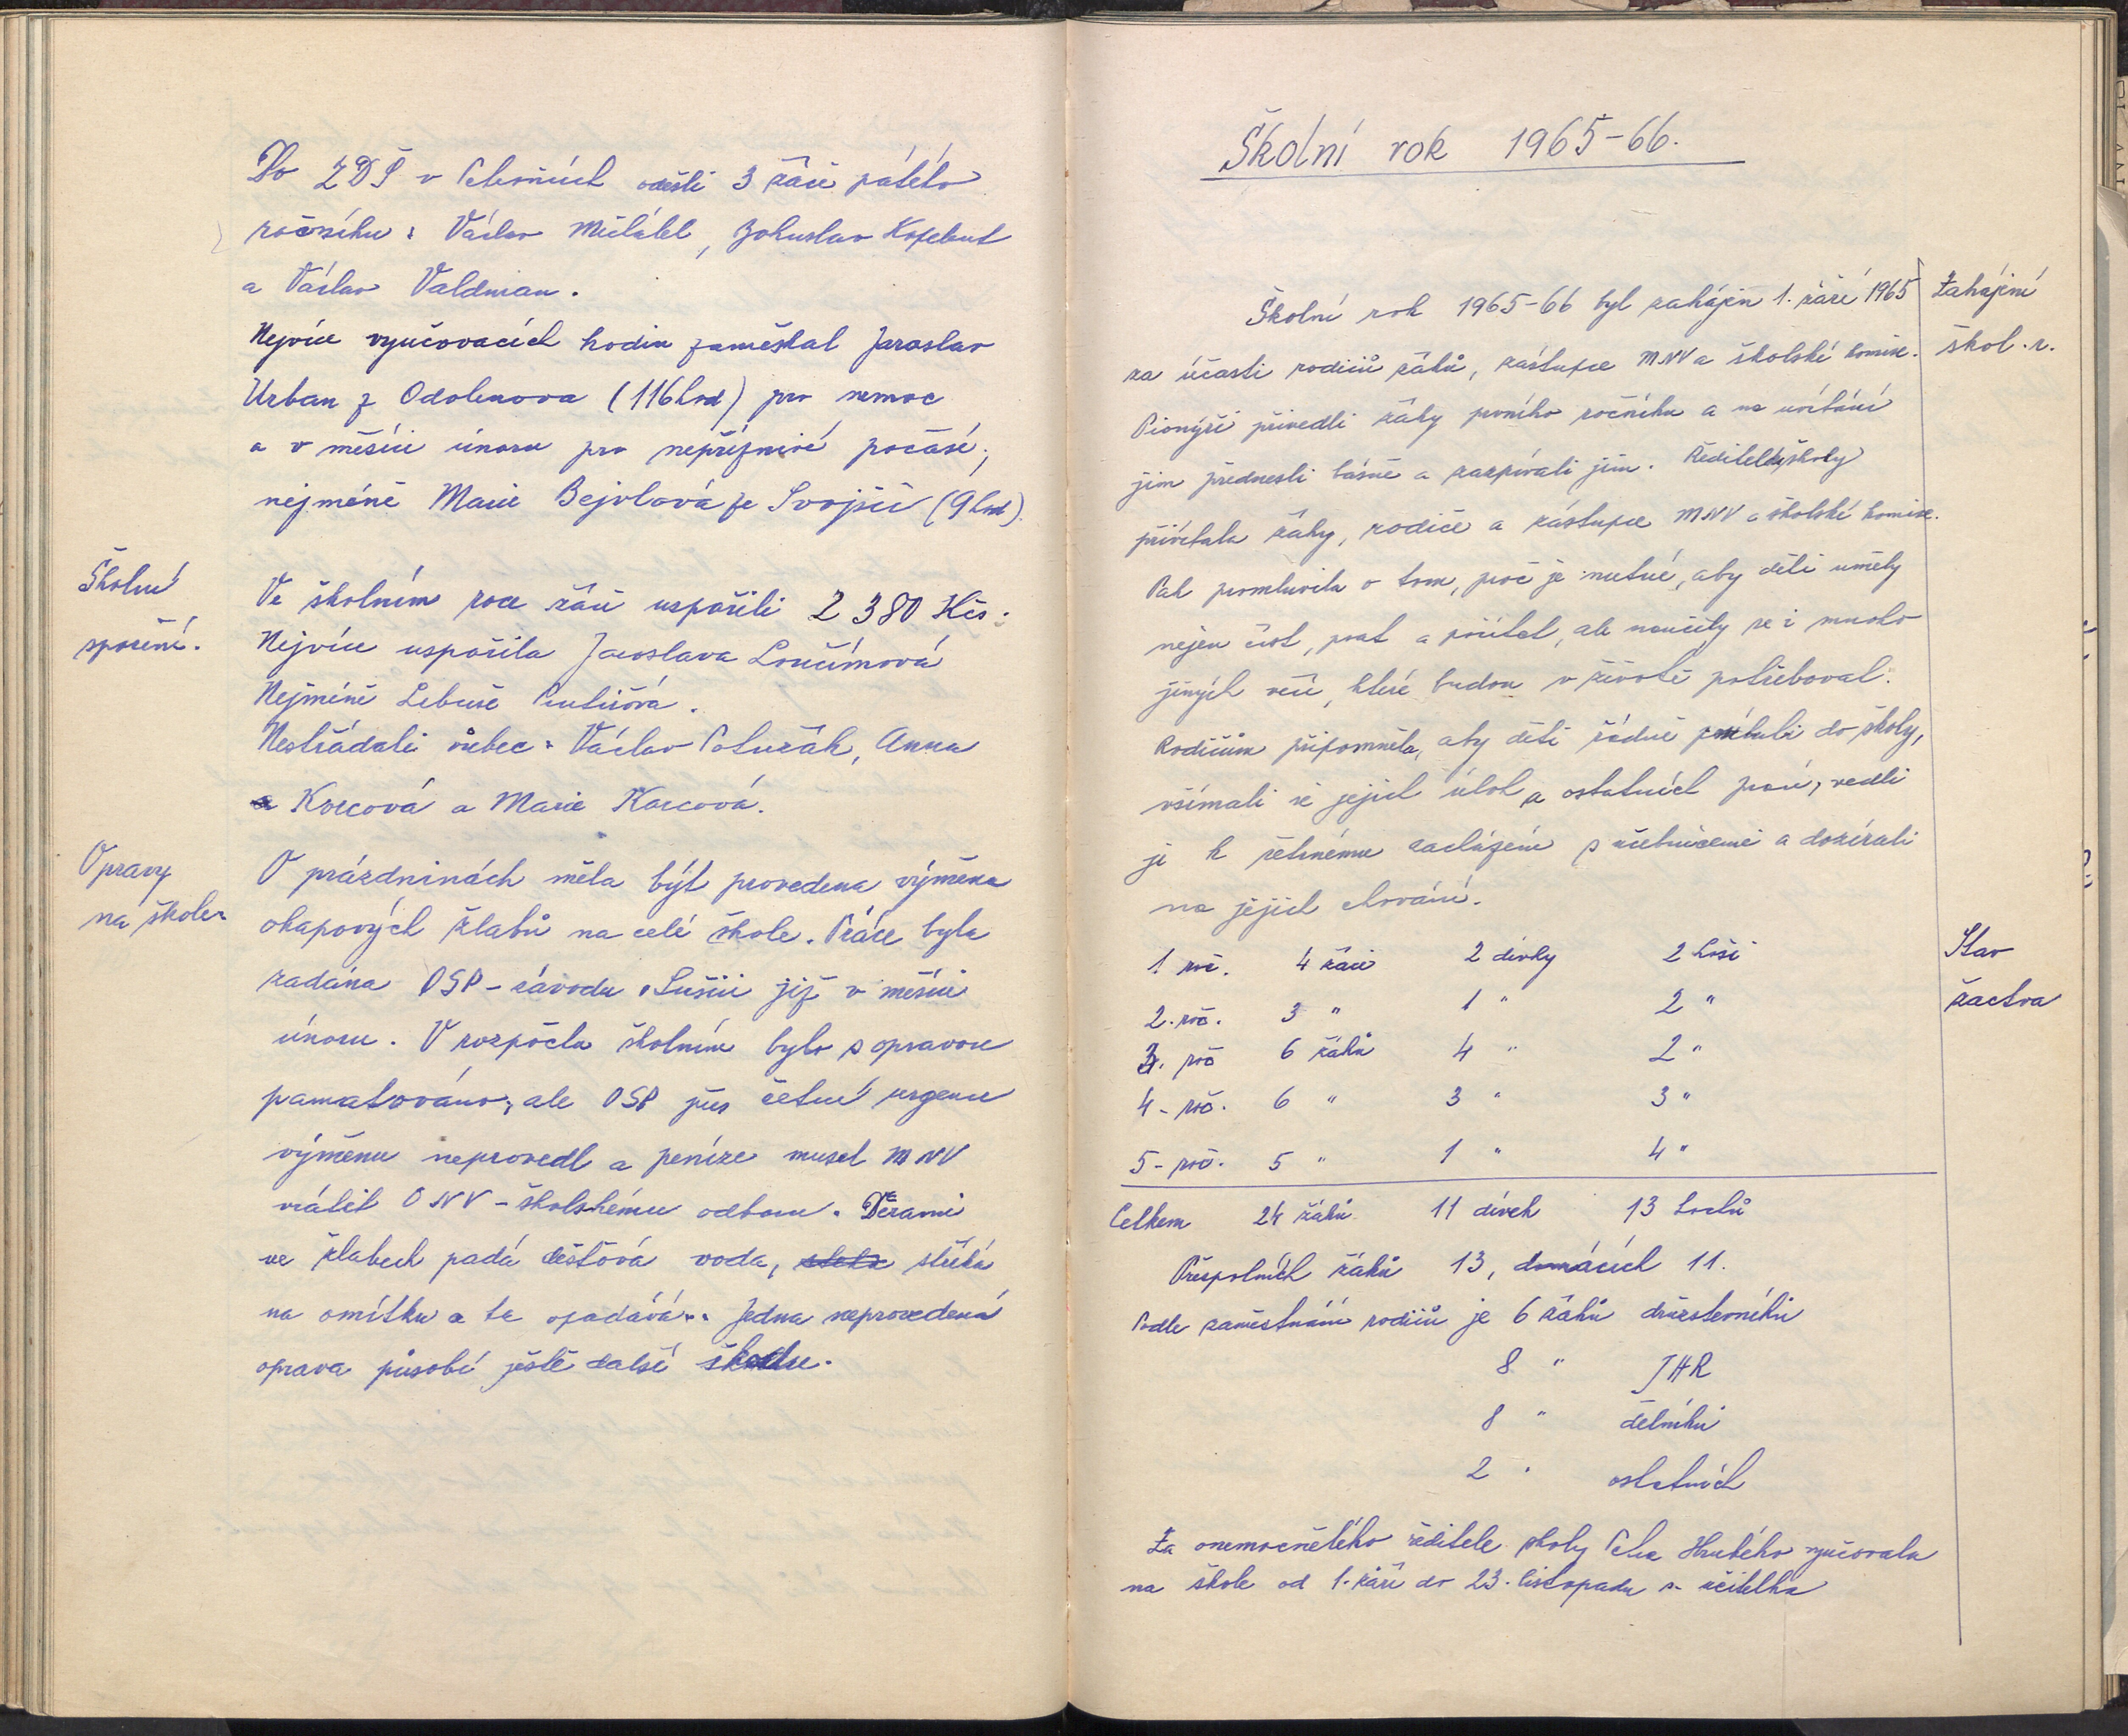 Do ZDŠ v odešli 3 žáci pátého
ročníku: Václav Michálek, Bohuslav
a Václav Valdman.
Nejvíce vyučovacích hodin zameškal Jaroslav
Urban z Odolenova (116 hod) pro nemoc
a v měsíci únoru pro nepříznivé počasí;
nejméně Marie Bejvlová ze Svojšic (9 hod).
Školní
spoření.
Ve školním roce žáci uspořili 2 380 Kčs.
Nejvíce uspořila Jaroslava
Nejméně Libuše
Nestřádali vůbec: Václav Polužák, Anna
Korcová a Marie Korcová.
Opravy
na škole.
O prázdninách měla být provedena výměna
okapových žlabů na celé škole. Práce byla
zadána OSP - závodu Sušici již v měsíci
únoru. V rozpočtu školním bylo s opravou
pamatováno, ale OSP přes četné urgence
výměnu neprovedl a peníze musel MNV
vrátit ONV - školskému odboru. Děrami
ve žlabech padá dešťová voda, stříká
na omítku a ta opadává. Jedna neprovedená
oprava působí ještě další škodu.
Školní rok 1965-66.
Školní rok 1965-66 byl zahájen 1. září 1965
za účasti rodičů žáků, zástupce MNV a školské komise.
Zahájení
škol. r.
Pionýři přivedli žáky prvního ročníku a na uvítání
jim přednesli básně a zazpívali jim. Ředitelka školy
přivítala žáky, rodiče a zástupce MNV a školské komise.
Pak promluvila o tom, proč je nutné, aby děti uměly
nejen číst, psát a počítat, ale naučily se i mnoho
jiných věcí, které budou v životě potřebovat.
Rodičům připomněla, aby děti řádně posílali do školy,
všímali si jejich úloh a ostatních prací, vedli
je k šetrnému zacházení s učebnicemi a dozírali
na jejich chování.
Stav
žactva
1. roč. 4 žáci 2 dívky 2 hoši
2. roč. 3 " 1 " 2 "
3. roč 6 žáků 4 " 2 "
4. roč. 6 " 3 " 3 "
5. roč. 5 " 1 " 4 "
Celkem 24 žáků 11 dívek 13 hochů
Přespolních žáků 13, domácích 11.
Podle zaměstnání rodičů je 6 žáků družstevníků
8 " JHR
8 " dělníků
2 " ostatních
Za onemocnělého ředitele školy Petra Hrubého vyučovala
na škole od 1. září do 23. listopadu s. učitelka